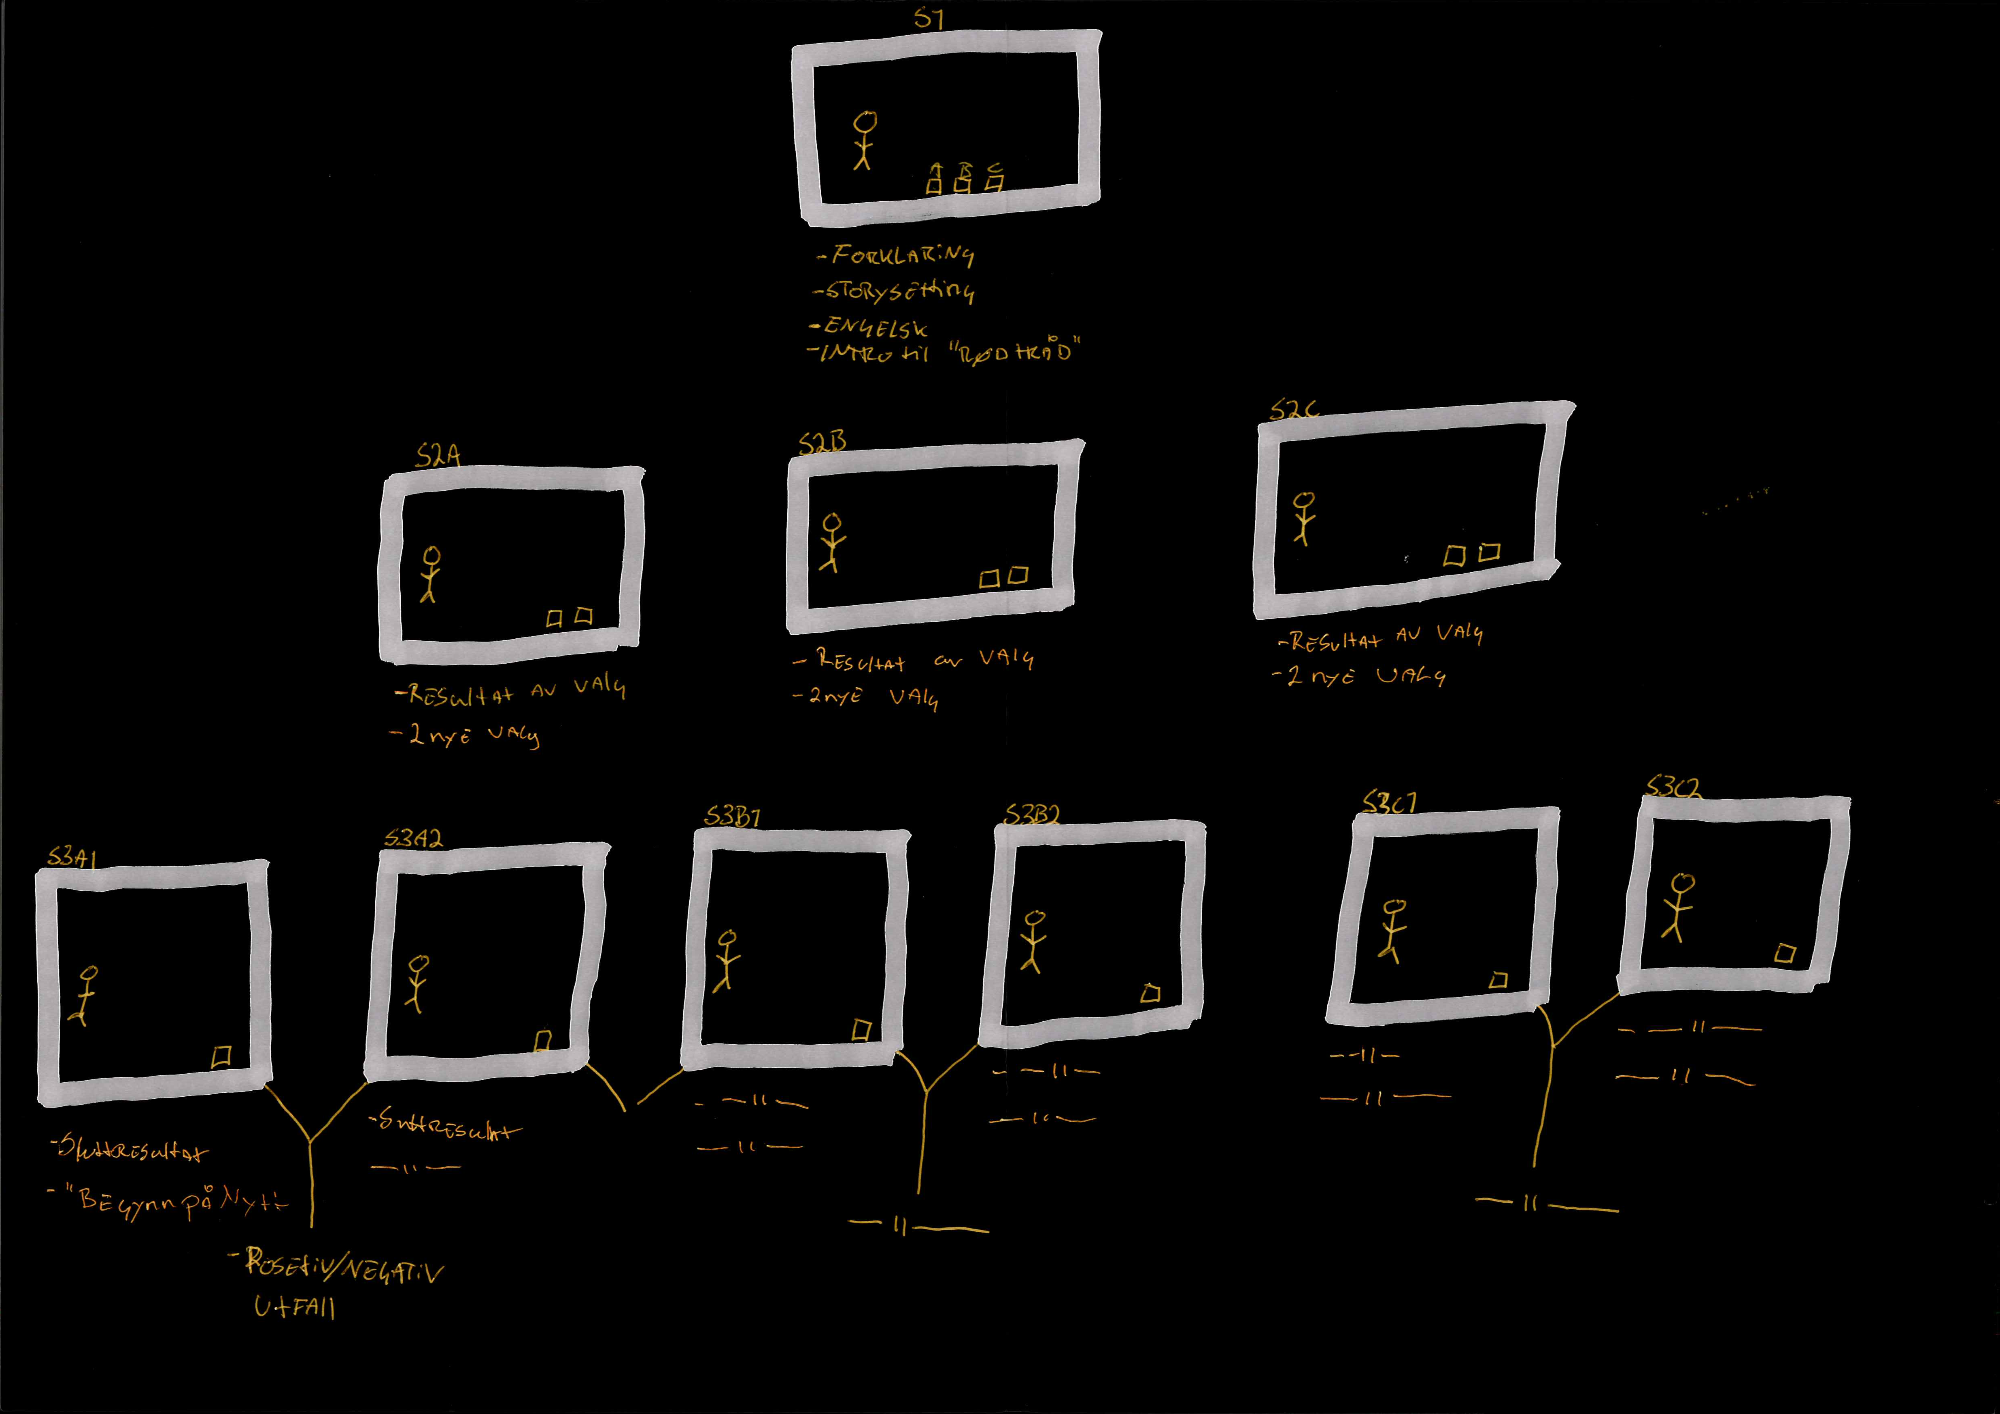 S1
A B C
-FORKLARiNg
-STORYSEtting
-ENgELSK
-INTRO til "RØD tRÅD"
S2A
-RESultAt AV VAlg
-2 nyE VALg
S2B
-RESultAt av VAlg
-2nyE VALg
S2C
-RESultAt AV VAlg
-2 nyE VALg
S3A1
-SluttRESultAt
-"BEgynn på Nytt
S3A2
-SluttRESultAt
—"—
-POSEtiV/NEgATiV
UtFAll
S3B1
- —"—
—"—
S3B2
- —"—
—"—
—"—
S3C1
- -"-
—"—
S3C2
- —"—
—"—
—"—